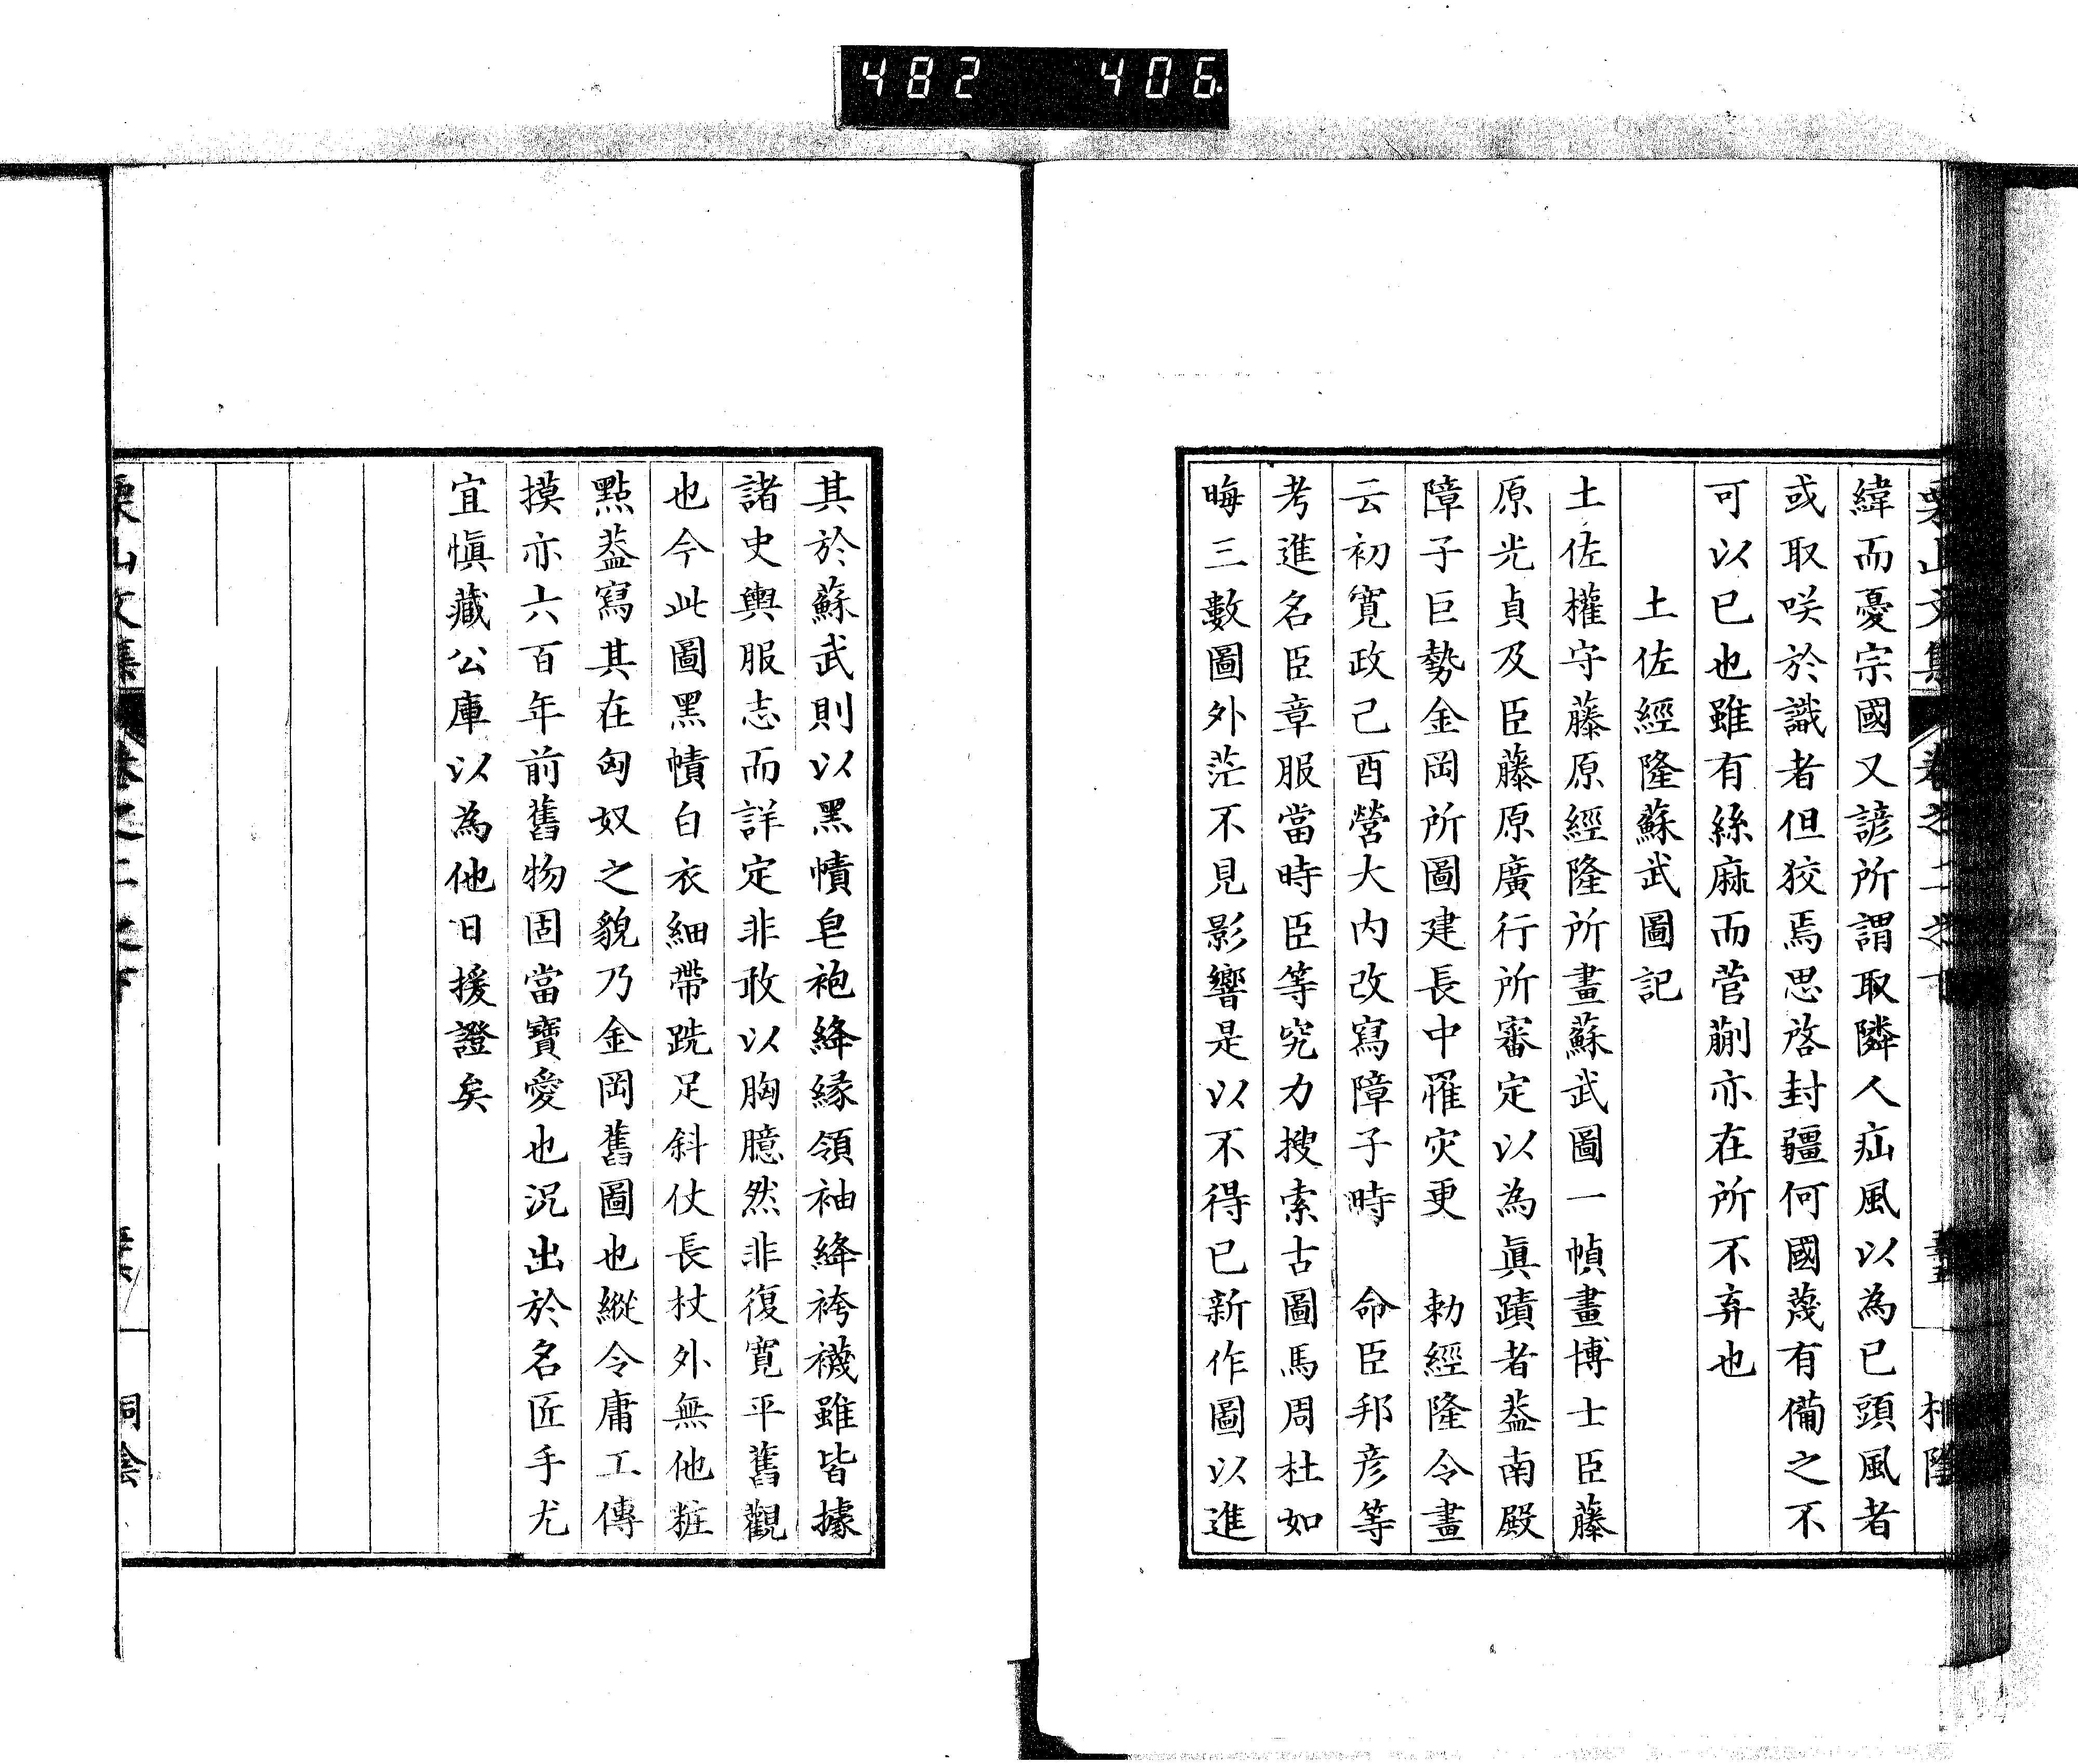 482 406
緯而憂宗國又諺所謂取隣人疝風以為已頭風者
或取咲於識者但狡焉思啓封疆何國蔑有備之不
可以已也雖有絲麻而菅蒯亦在所不弃也
土佐經隆蘇武圖記
土佐權守藤原經隆所畫蘇武圖一幀畫博士臣藤
原光貞及臣藤原廣行所審定以為眞蹟者葢南殿
障子巨勢金岡所圖建長中罹灾更 勅經隆令畫
云初寛政己酉營大内改寫障子時 命臣邦彦等
考進名臣章服當時臣等究力搜索古圖馬周杜如
晦三數圖外茫不見影響是以不得已新作圖以進
其於蘇武則以黑幘皂袍絳縁領袖絳袴襪雖皆據
諸史輿服志而詳定非敢以胸臆然非復寛平舊觀
也今此圖黑幘白衣細帶跣足斜仗長杖外無他粧
點葢寫其在匈奴之貌乃金岡舊圖也縱令庸工傳
摸亦六百年前舊物固當寶愛也況出於名匠手尤
宜愼藏公庫以為他日援證矣